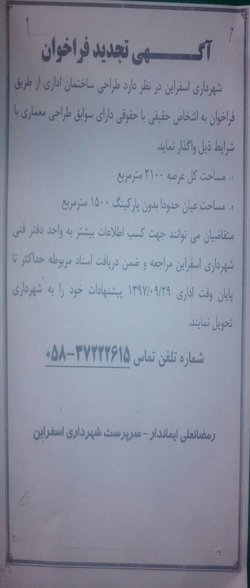 آگهی تجدید فراخوان
شهرداری اسفراین در نظر دارد طراحی ساختمان اداری از طریق
فراخوان به اشخاص حقیقی یا حقوقی دارای سوابق طراحی معماری با
شرایط ذیل واگذار نماید.
۱- مساحت کل عرصه ۲۱۰۰ مترمربع
۲- مساحت عیان حدوداً بدون پارکینگ ۱۵۰۰ مترمربع
متقاضیان می توانند جهت کسب اطلاعات بیشتر به واحد دفتر فنی
شهرداری اسفراین مراجعه و ضمن دریافت اسناد مربوطه حداکثر تا
پایان وقت اداری ۱۳۹۷/۰۹/۲۹ پیشنهادات خود را به شهرداری
تحویل نمایند.
شماره تلفن تماس ۳۷۲۲۲۶۱۵-۰۵۸
رمضانعلی ایماندار - سرپرست شهرداری اسفراین